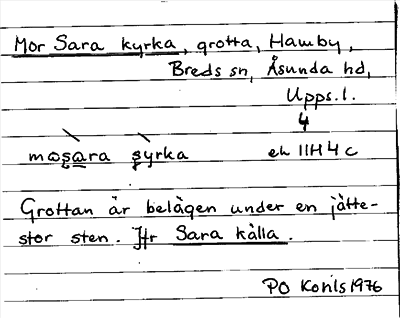 Mor Sara kyrka, grotta, Hamby,
Breds sn, Åsunda hd,
Upps. l.
4
mωşara şyrka ek 11H4c
Grottan är belägen under en jätte-
stor sten. Jfr Sara källa.
PO Konls 1976